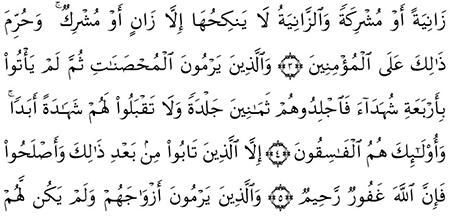 زَانِيَةً أَوْ مُشْرِكَةً وَٱلزَّانِيَةُ لَا يَنكِحُهَا إِلَّا زَانٍ أَوْ مُشْرِكٌ ۚ وَحُرِّمَ
ذَٰلِكَ عَلَى ٱلْمُؤْمِنِينَ ﴿٣﴾ وَٱلَّذِينَ يَرْمُونَ ٱلْمُحْصَنَاتِ ثُمَّ لَمْ يَأْتُوا۟
بِأَرْبَعَةِ شُهَدَآءَ فَٱجْلِدُوهُمْ ثَمَانِينَ جَلْدَةً وَلَا تَقْبَلُوا۟ لَهُمْ شَهَادَةً أَبَدًا ۚ
وَأُو۟لَـٰٓئِكَ هُمُ ٱلْفَاسِقُونَ ﴿٤﴾ إِلَّا ٱلَّذِينَ تَابُوا۟ مِنۢ بَعْدِ ذَٰلِكَ وَأَصْلَحُوا۟
فَإِنَّ ٱللَّهَ غَفُورٌ رَّحِيمٌ ﴿٥﴾ وَٱلَّذِينَ يَرْمُونَ أَزْوَاجَهُمْ وَلَمْ يَكُن لَّهُمْ